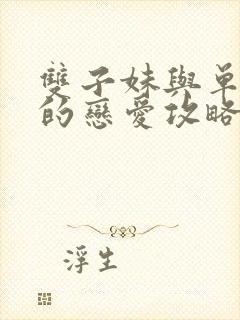 雙子妹與單
的戀愛攻略
浮生